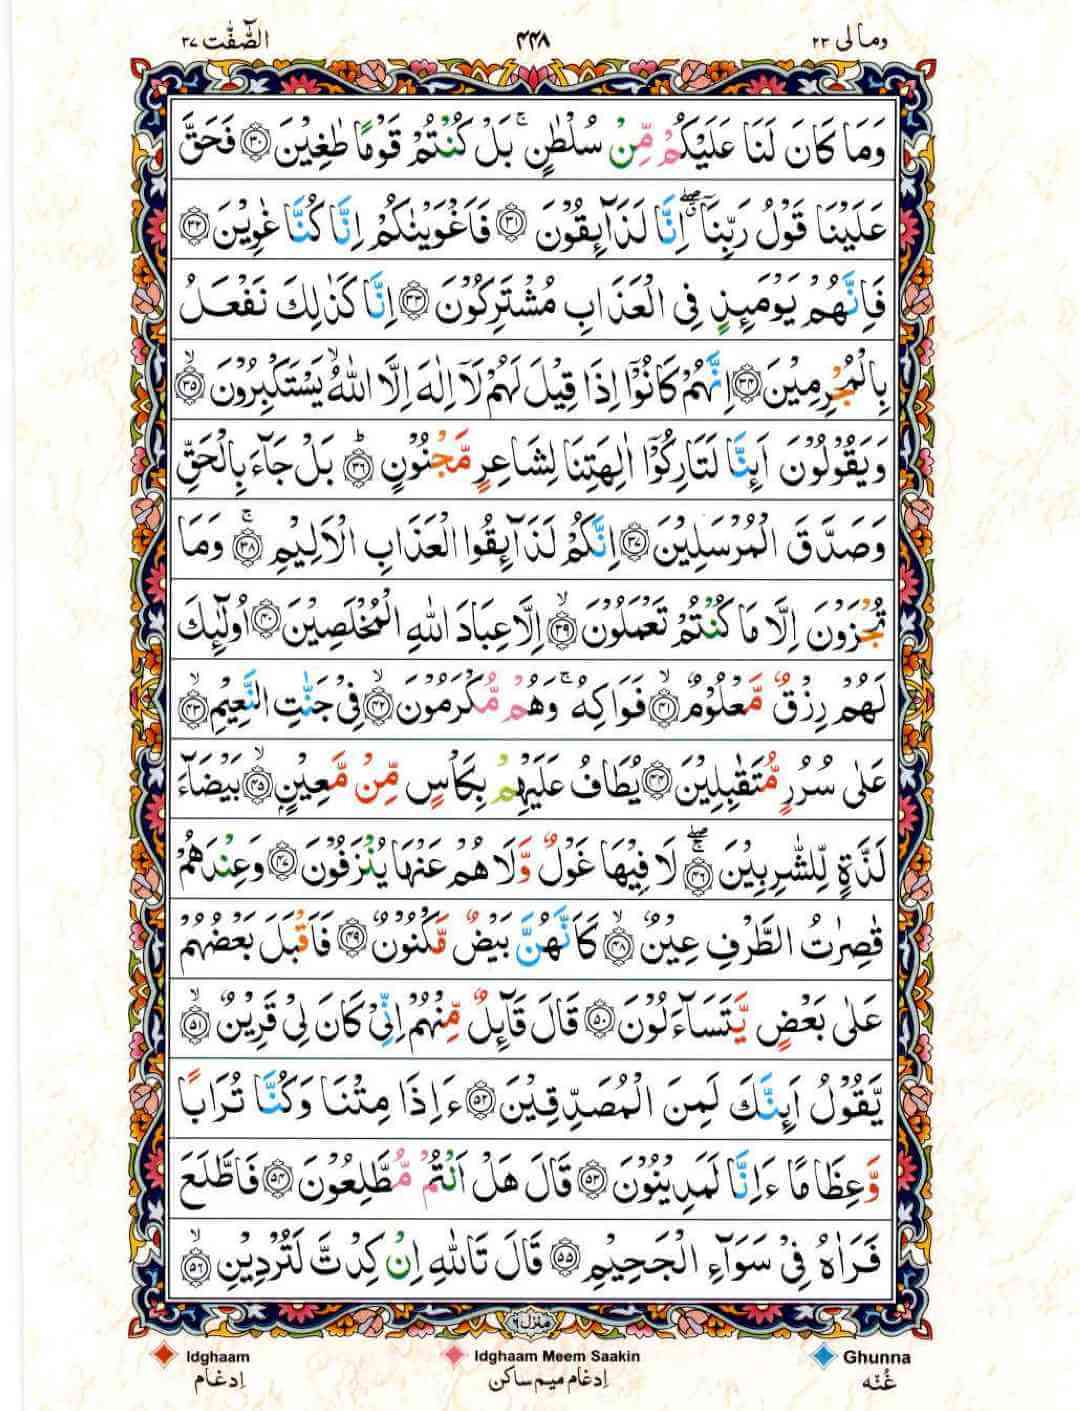 وما لی ۲۳ ۴۴۸ الصّٰٓفّٰت ۳۷
وَمَا كَانَ لَنَا عَلَيْكُمْ مِّنْ سُلْطٰنٍ ۚ بَلْ كُنْتُمْ قَوْمًا طٰغِيْنَ ﴿۳۰﴾ فَحَقَّ
عَلَيْنَا قَوْلُ رَبِّنَآ ۖ اِنَّا لَذَآئِقُوْنَ ﴿۳۱﴾ فَاَغْوَيْنٰكُمْ اِنَّا كُنَّا غٰوِيْنَ ﴿۳۲﴾
فَاِنَّهُمْ يَوْمَئِذٍ فِى الْعَذَابِ مُشْتَرِكُوْنَ ﴿۳۳﴾ اِنَّا كَذٰلِكَ نَفْعَلُ
بِالْمُجْرِمِيْنَ ﴿۳۴﴾ اِنَّهُمْ كَانُوْٓا اِذَا قِيْلَ لَهُمْ لَآ اِلٰهَ اِلَّا اللّٰهُ ۙ يَسْتَكْبِرُوْنَ ﴿۳۵﴾ ۙ
وَيَقُوْلُوْنَ اَئِنَّا لَتَارِكُوْٓا اٰلِهَتِنَا لِشَاعِرٍ مَّجْنُوْنٍ ﴿۳۶﴾ ؕ بَلْ جَآءَ بِالْحَقِّ
وَصَدَّقَ الْمُرْسَلِيْنَ ﴿۳۷﴾ اِنَّكُمْ لَذَآئِقُوا الْعَذَابِ الْاَلِيْمِ ﴿۳۸﴾ ۚ وَمَا
تُجْزَوْنَ اِلَّا مَا كُنْتُمْ تَعْمَلُوْنَ ﴿۳۹﴾ ۙ اِلَّا عِبَادَ اللّٰهِ الْمُخْلَصِيْنَ ﴿۴۰﴾ اُولٰٓئِكَ
لَهُمْ رِزْقٌ مَّعْلُوْمٌ ﴿۴۱﴾ ۙ فَوَاكِهُ ۚ وَهُمْ مُّكْرَمُوْنَ ﴿۴۲﴾ ۙ فِىْ جَنّٰتِ النَّعِيْمِ ﴿۴۳﴾ ۙ
عَلٰى سُرُرٍ مُّتَقٰبِلِيْنَ ﴿۴۴﴾ يُطَافُ عَلَيْهِمْ بِكَاْسٍ مِّنْ مَّعِيْنٍ ﴿۴۵﴾ ۙ بَيْضَآءَ
لَذَّةٍ لِّلشّٰرِبِيْنَ ﴿۴۶﴾ ۚ لَا فِيْهَا غَوْلٌ وَّلَا هُمْ عَنْهَا يُنْزَفُوْنَ ﴿۴۷﴾ وَعِنْدَهُمْ
قٰصِرٰتُ الطَّرْفِ عِيْنٌ ﴿۴۸﴾ ۙ كَاَنَّهُنَّ بَيْضٌ مَّكْنُوْنٌ ﴿۴۹﴾ فَاَقْبَلَ بَعْضُهُمْ
عَلٰى بَعْضٍ يَّتَسَآءَلُوْنَ ﴿۵۰﴾ قَالَ قَآئِلٌ مِّنْهُمْ اِنِّىْ كَانَ لِىْ قَرِيْنٌ ﴿۵۱﴾ ۙ
يَّقُوْلُ اَئِنَّكَ لَمِنَ الْمُصَدِّقِيْنَ ﴿۵۲﴾ ءَاِذَا مِتْنَا وَكُنَّا تُرَابًا
وَّعِظَامًا ءَاِنَّا لَمَدِيْنُوْنَ ﴿۵۳﴾ قَالَ هَلْ اَنْتُمْ مُّطَّلِعُوْنَ ﴿۵۴﴾ فَاطَّلَعَ
فَرَاٰهُ فِىْ سَوَآءِ الْجَحِيْمِ ﴿۵۵﴾ قَالَ تَاللّٰهِ اِنْ كِدْتَّ لَتُرْدِيْنِ ﴿۵۶﴾ ۙ
منزل ۶
Idghaam Idghaam Meem Saakin Ghunna
اِدغام اِدغام میم ساکن غُنّه